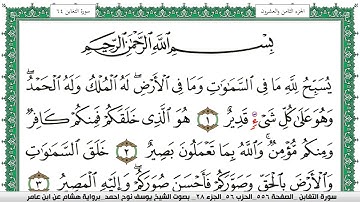 الجزء الثامن والعشرون
سورة التغابن ٦٤
بِسْمِ اللَّهِ الرَّحْمَٰنِ الرَّحِيمِ
يُسَبِّحُ لِلَّهِ مَا فِي السَّمَٰوَٰتِ وَمَا فِي الْأَرْضِ ۖ لَهُ الْمُلْكُ وَلَهُ الْحَمْدُ ۖ
وَهُوَ عَلَىٰ كُلِّ شَيْءٍ قَدِيرٌ ١ هُوَ الَّذِي خَلَقَكُمْ فَمِنكُمْ كَافِرٌ
وَمِنكُم مُّؤْمِنٌ ۚ وَاللَّهُ بِمَا تَعْمَلُونَ بَصِيرٌ ٢ خَلَقَ السَّمَٰوَٰتِ
وَالْأَرْضَ بِالْحَقِّ وَصَوَّرَكُمْ فَأَحْسَنَ صُوَرَكُمْ ۖ وَإِلَيْهِ الْمَصِيرُ ٣
سورة التغابن الصفحة ٥٥٦ الحزب ٥٦ الجزء ٢٨ . بصوت الشيخ يوسف نوح أحمد. برواية هشام عن ابن عامر